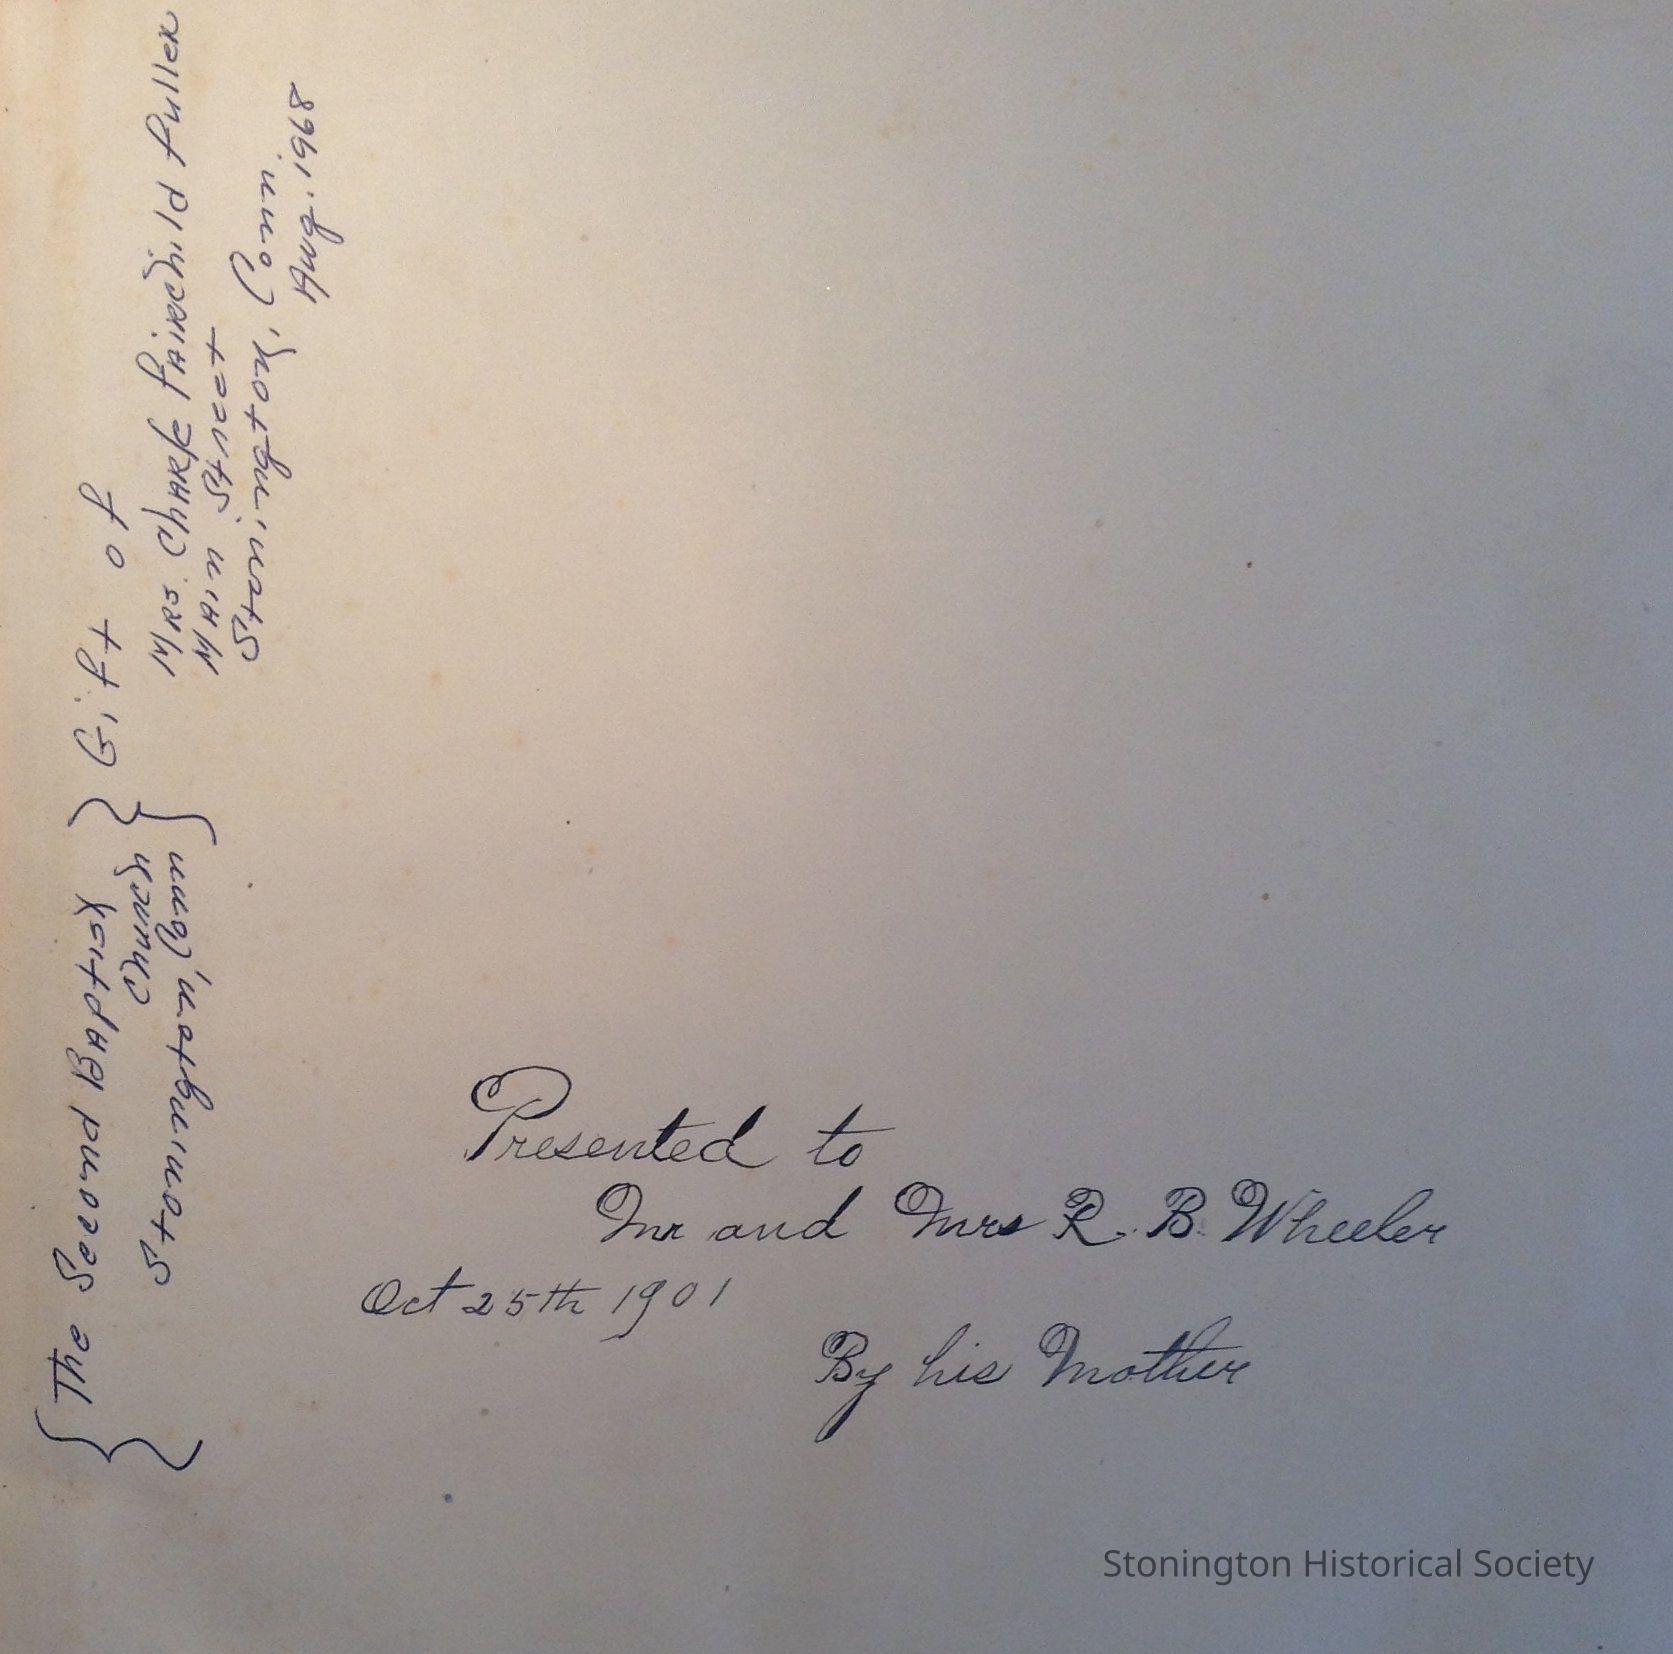 The Second Baptist
Church
Stonington, Conn
Gift of
Mrs. Fairchild Fuller
Main Street
Stonington, Conn.
Aug. 1968
Presented to
Mr and Mrs R. B. Wheeler
Oct 25th 1901
By his Mother
Stonington Historical Society